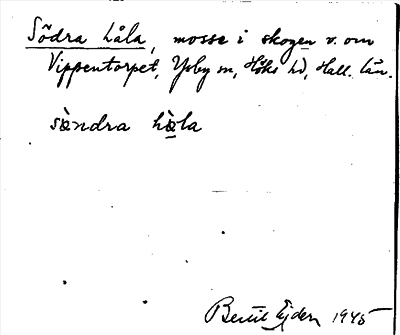 Södra håla, mosse i skogen v. om
Vippentorpet, Ysby sn, Höks hd, Hall. län.
sàndra hàla
Bertil Ejder 1945